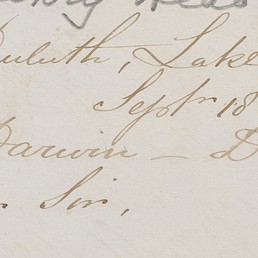 Duluth, Lake
Septr 18
Darwin — D
Sir,